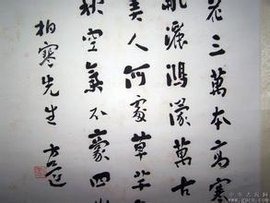 花三萬本高寒
灑鴻濛萬古
美人何處草
空氣不豪四
柏寒先生